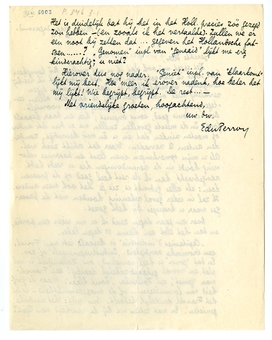 Het is duidelijk dat hij het in het Holl. precies zóó gezegd
zou hebben — (en zooals ik het vertaalde). Zullen we er
een noot bij zetten dat - gegeven het Hollandsche
......? "Genomen" inpl. van "geniet" lijkt me erg
kinderachtig; u niet?
Hierover dus nog nader. "Geniet mij" van
lijkt mij best. Hoe meer ik erover nadenk, hoe beter het
mij lijkt! Wie begrijpt, begrijpt. De rest ... —
Met vriendelijke groeten, hoogachtend,
uw dw.
EduPerron